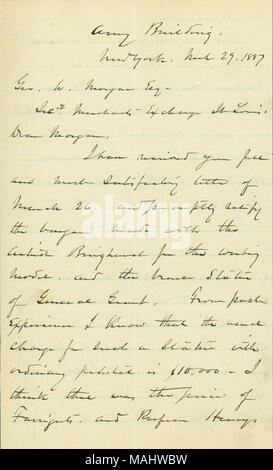 Army Building,
New York. Mch 29, 1887
Geo. H. Morgan Esq-
Sect. Merchants Exchange St Louis.
Dear Morgan.
I have received your full
and most satisfactory letter of
March 26, and promptly ratify
the bargain made with the
artist Bringhurst for the working
model. and the bronze Statue
of General Grant. From past
Experience I Know that the usual
charge for such a Statue with
ordinary pedestal is $10,000 - I
think that was the price of
Farragut. and Professor Henrys
alamy
Image ID: MAHWBW
www.alamy.com